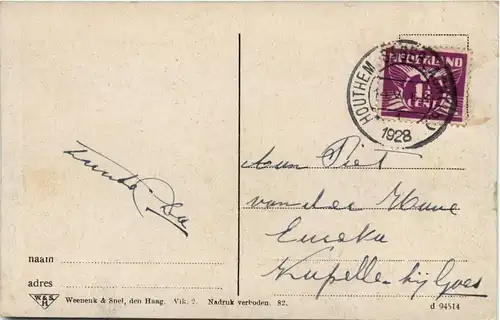 NEDERLAND
1½
CENT
HOUTHEM
1928
Aan Piet
van der
Eureka
Kapelle bij Goes
naam
adres
W&S
H
Weenenk & Snel, den Haag. Vik. 2. Nadruk verboden. 82.
d 94514